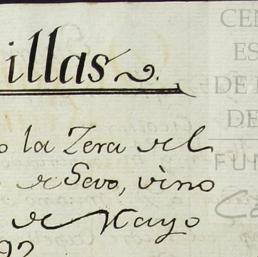 illas.
o la Zera del
de Sevo, vino
de Mayo
92
CEN
ES
DE
DE
FUN
Ca